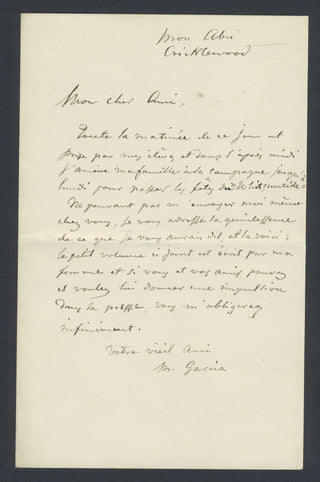 Mon Abri
Cricklewood
Mon cher Ami,
Toute la matinée de ce jour est
prise par mes élèves et dans l'après midi
j'amène ma famille à la campagne jusqu'à
lundi pour passer les fêtes de Whitsuntide.
Ne pouvant pas m'envoyer moi même
chez vous, je vous adresse la quintessence
de ce que je vous aurais dit et la voici;
le petit volume ci joint est écrit par ma
femme et si vous et vos amis pouvez
et voulez lui donner une impulsion
dans la presse, vous m'obligerez
infiniment.
Votre vieil Ami
M. Garcia